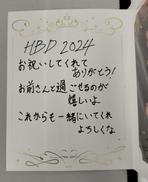 HBD 2024
お祝いしてくれて
ありがとう!
お前さんと過ごせるのが
嬉しいよ
これからも一緒にいてくれ
よろしくな